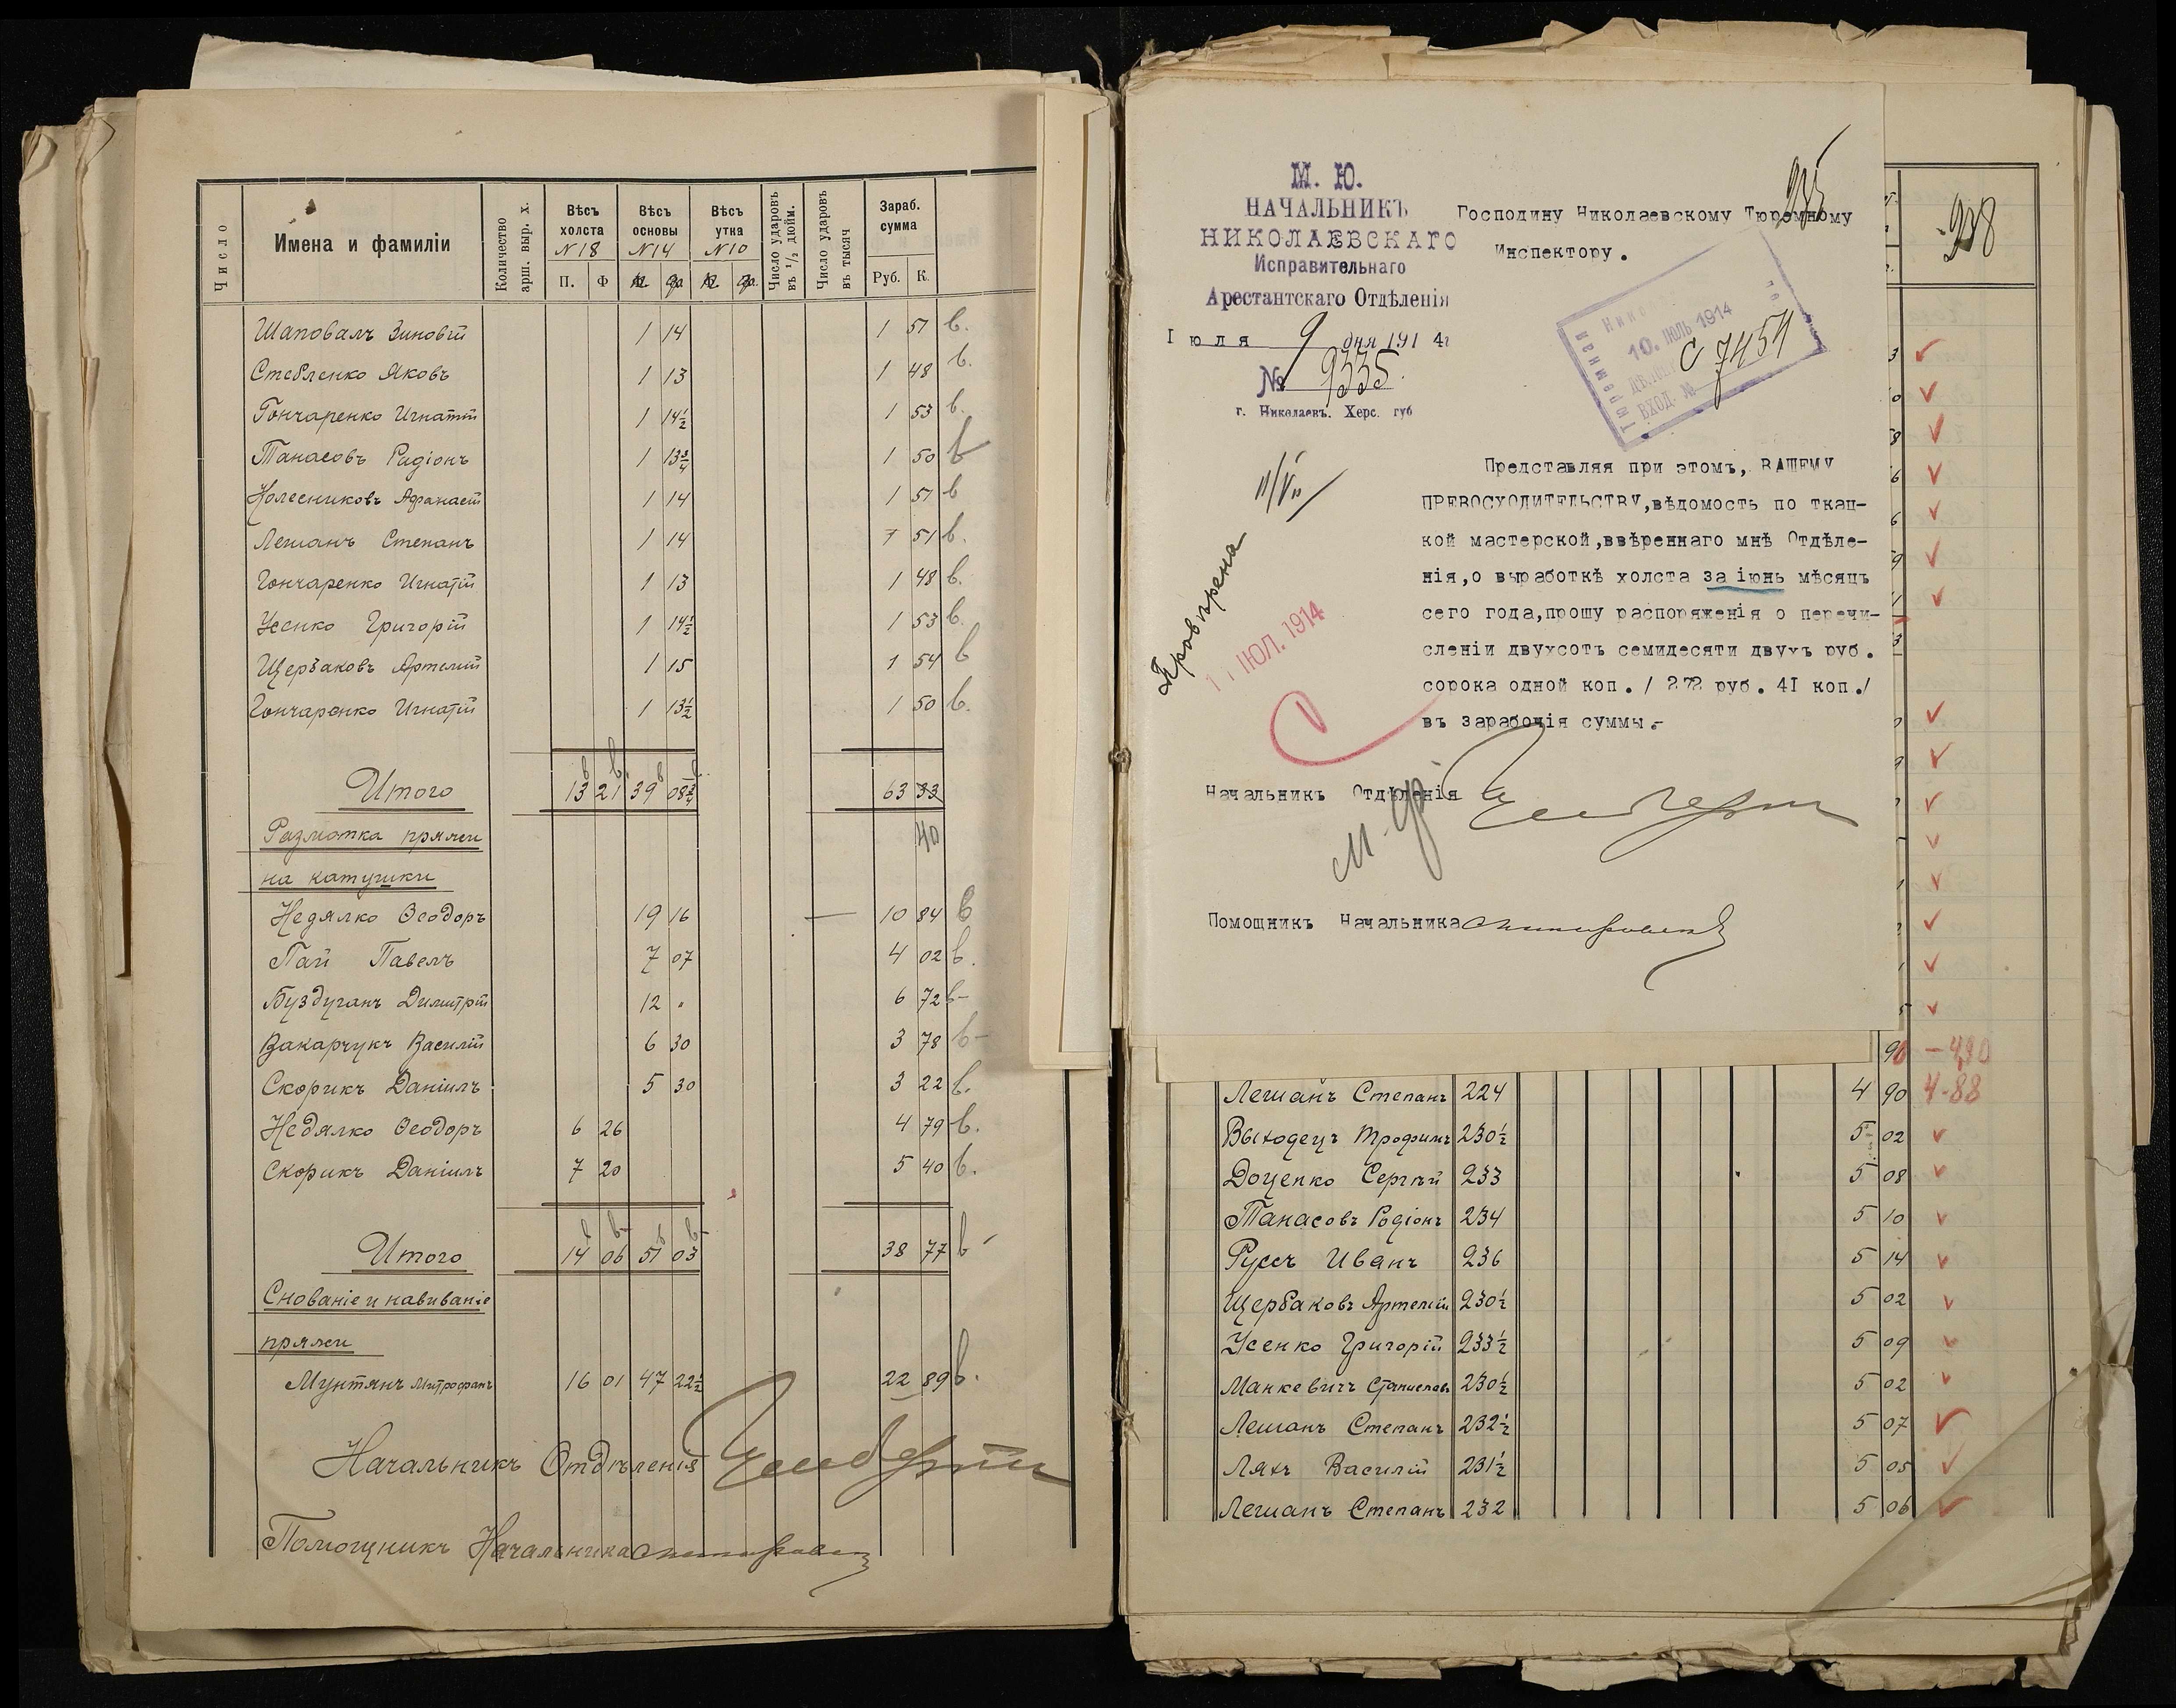 Число Имена и фамиліи Количество арш. выр. х. Вѣсъ холста N18 П. Ф Вѣсъ основы N14 Вѣсъ утка N10 Число ударовъ въ 1/2 дюйм. Число ударовъ въ тысяч Зараб. сумма Руб. К.
Шаповалъ Зиновій 1 14 1 51 в.
Стебленко Яковъ 1 13 1 48 в.
Гончаренко Игнатій 1 14 1/2 1 53 в.
Танасовъ Радіонъ 1 13 3/4 1 50 в
Колесниковъ Афанасій 1 14 1 51 в
Лешанъ Степанъ 1 14 1 51 в.
Гончаренко Игнатій 1 13 1 48 в.
Усенко Григорій 1 14 1/2 1 53 в.
Щербаковъ Артемій 1 15 1 54 в
Гончаренко Игнатій 1 13 1/2 1 50 в.
Итого 13 21 39 08 3/4 63 33
40
Размотка пряжи
на катушки
Недялко Ѳеодоръ 19 16 10 84 в
Пай Павелъ 7 07 4 02 в.
Буздуганъ Димитрій 12 " 6 72 в
Вакарчукъ Василій 6 30 3 78 в
Скорикъ Даніилъ 5 30 3 22 в.
Недялко Ѳеодоръ 6 26 4 79 в.
Скорикъ Даніилъ 7 20 5 40 в.
Итого 14 06 51 03 38 77 в
Снованіе и навиваніе
пряжи
Мунтянъ Митрофанъ 16 01 47 22 1/2 22 89 в.
Начальникъ Отдѣленія
Помощникъ Начальника
М. Ю.
НАЧАЛЬНИКЪ
НИКОЛАЕВСКАГО
Исправительнаго
Арестантскаго Отдѣленія
Iюля 9 дня 1914г
№ 9335.
г. Николаевъ. Херс. губ
235
Господину Николаевскому Тюремному
Инспектору.
10. ІЮЛЬ 1914
ВХОД. № 7454
11/VII
Провѣрена
11 ІЮЛ. 1914
Представляя при этомъ, ВАШЕМУ
ПРЕВОСХОДИТЕЛЬСТВУ,вѣдомость по ткац-
кой мастерской,ввѣреннаго мнѣ Отдѣле-
нія,о выработкѣ холста за іюнь мѣсяцъ
сего года,прошу распоряженія о перечи-
сленіи двухсотъ семидесяти двухъ руб.
сорока одной коп. / 272 руб. 4I коп./
въ заработія суммы.-
Начальникъ Отдѣленія
Помощникъ Начальника
238
90 - 4,90
Лешанъ Степанъ 224 4 90 4-88
Выходецъ Трофимъ 230 1/2 5 02
Доценко Сергѣй 233 5 08
Танасовъ Родіонъ 234 5 10
Руссъ Иванъ 236 5 14
Щербаковъ Артемій 230 1/2 5 02
Усенко Григорій 233 1/2 5 09
Манкевичъ Станиславъ 230 1/2 5 02
Лешанъ Степанъ 232 1/2 5 07
Ляхъ Василій 231 1/2 5 05
Лешанъ Степанъ 232 5 06